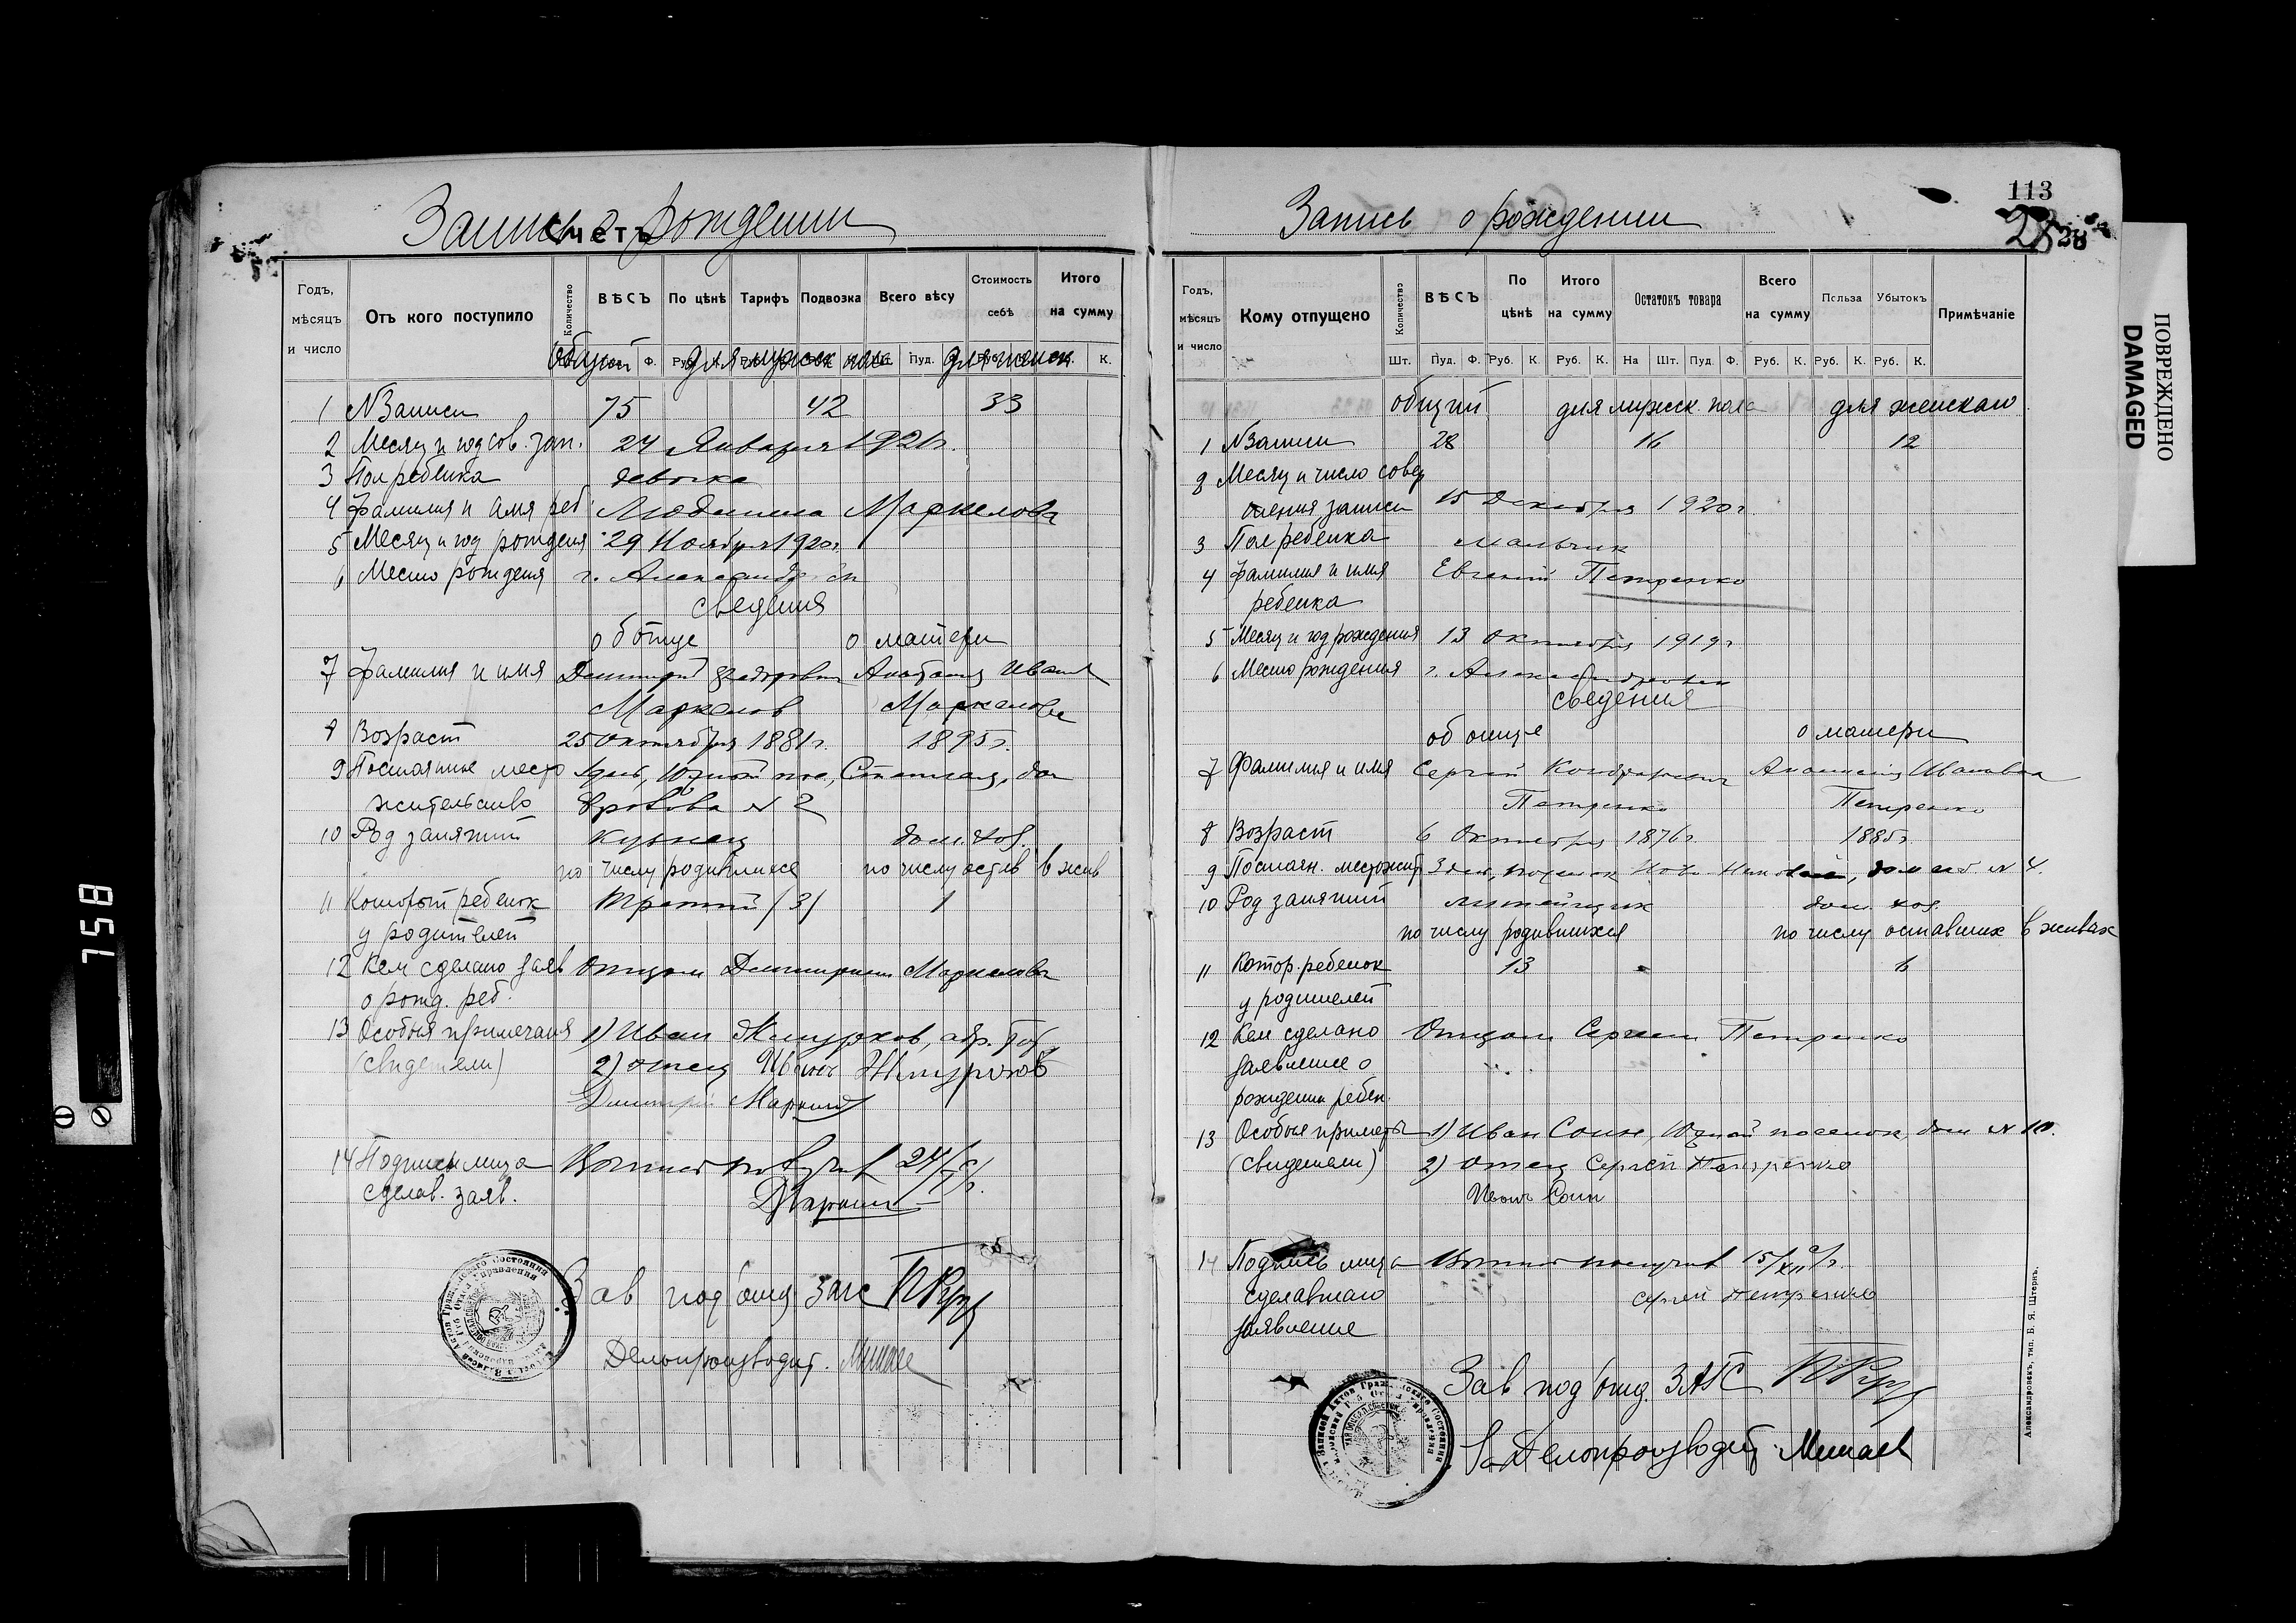 Запись о рождении
Счетъ
Годъ, мѣсяцъ и число
Отъ кого поступило
Количество
ВѢСЪ
По цѣнѣ
Тарифъ
Подвозка
Всего вѣсу
Стоимость себѣ
Итого на сумму
Общий для мужск пола для женск
1 № Записи 75 42 33
2 Месяц и год сов. зап. 24 Января 1921 г.
3 Пол ребенка девочка
4 Фамилия и имя реб. Людмила Маркелова
5 Месяц и год рождения 29 Ноября 1920 г.
6 Место рождения г. Александровск
сведения
об отце о матери
7 Фамилия и имя Димитрий Анастасия Иван
Маркелов Маркелова
8 Возраст 25 Октября 1881 г. 1895 г.
9 Постоянное место
жительство № 2
10 Род занятий кузнец дом. хоз.
по числу родившихся по числу остав в жив
11 Который ребенок Третий (3) 1
у родителей
12 Кем сделано заяв Отцом Димитрием Маркеловым
о рожд. реб.
13 Особыя примечания 1) Иван
(свидетели) 2) отец Иванъ
Димитрий
14 Подпись лица 24/I
сделав. заяв.
Зав под'отд Загс
Делопроизводит. Минаев
ПОВРЕЖДЕНО
DAMAGED
758
113
28
28
Запись о рождении
Годъ, мѣсяцъ и число
Кому отпущено
Количество
ВѢСЪ
По цѣнѣ
Итого на сумму
Остатокъ товара
Всего на сумму
Польза
Убытокъ
Примѣчаніе
Шт. Пуд. Ф. Руб. К. Руб. К. На Шт. Пуд. Ф. Руб. К. Руб. К. Руб. К.
общий для мужск. пола для женскаго
1 № Записи 28 16 12
2 Месяц и число совер
шения записи 15 Декабря 1920 г
3 Пол ребенка мальчик
4 Фамилия и имя Евгений Петренко
ребенка
5 Месяц и год рождения 13 Октября 1919 г
6 Место рождения г. Александровск
сведения
об отце о матери
7 Фамилия и имя Сергей Кондратьевич Анастасия Ивановна
Петренко Петренко
8 Возраст 6 Октября 1876 г 1885 г
9 Постоян. местожит Здесь, поселок № 4.
10 Род занятий литейщик дом. хоз.
по числу родившихся по числу оставших в живых
11 Котор. ребенок 13 6
у родителей
12 Кем сделано Отцом Сергеем Петренко
заявление о
рождении ребен.
13 Особые приметы 1) Иван Соин, Южный поселок, дом № 110.
(свидетели) 2) Отец Сергей Петренко
Иванъ Соин
14 Подпись лица Копию получив 15/XII с/г.
сделавшаго Сергей Петренко
заявление
Зав под'отд. ЗАГС
Делопроизводит Минаев
Александровскъ, тип. Б. Я. Штернъ.